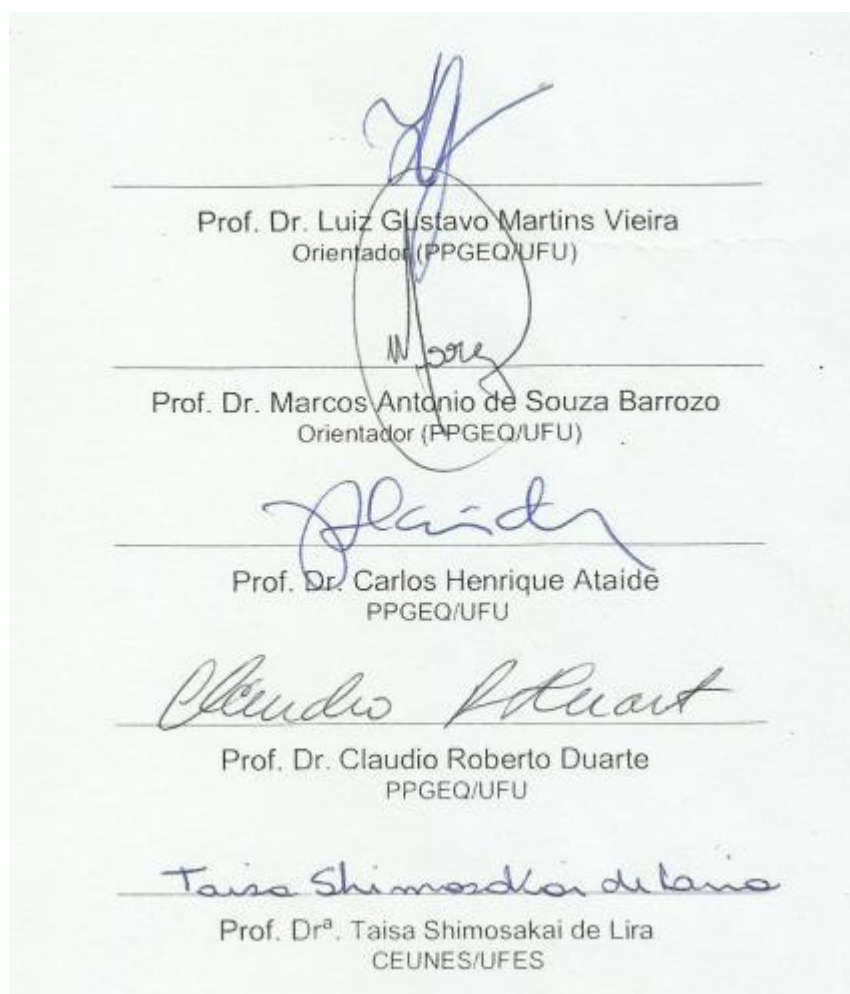 Prof. Dr. Luiz Gustavo Martins Vieira
Orientador (PPGEQ/UFU)
Prof. Dr. Marcos Antonio de Souza Barrozo
Orientador (PPGEQ/UFU)
Prof. Dr. Carlos Henrique Ataide
PPGEQ/UFU
Claudio R Duart
Prof. Dr. Claudio Roberto Duarte
PPGEQ/UFU
Taisa Shimosakai de Lira
Prof. Drª. Taisa Shimosakai de Lira
CEUNES/UFES